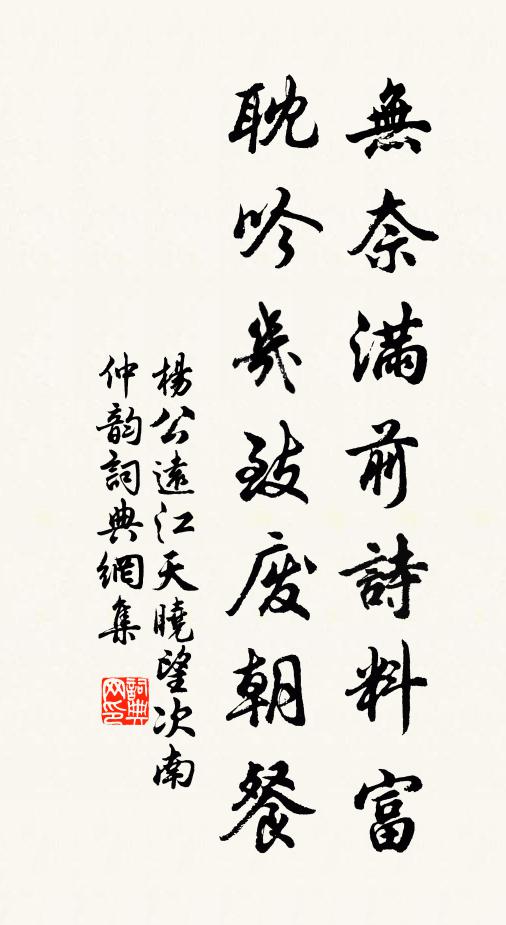 無奈滿前詩料富
耽吟幾致废朝餐
楊公遠江天曉望次南
仲韵詞典網集
詞典
网印